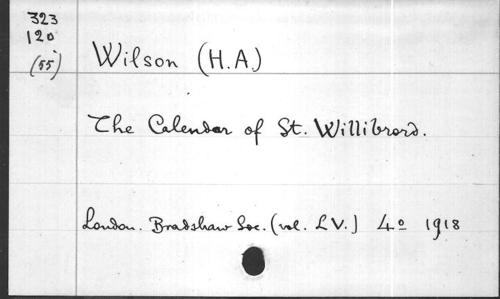 323
120
(55)
Wilson (H.A.)
The Calendar of St. Willibrord.
London. Bradshaw Soc. (vol. LV.) 4º 1918